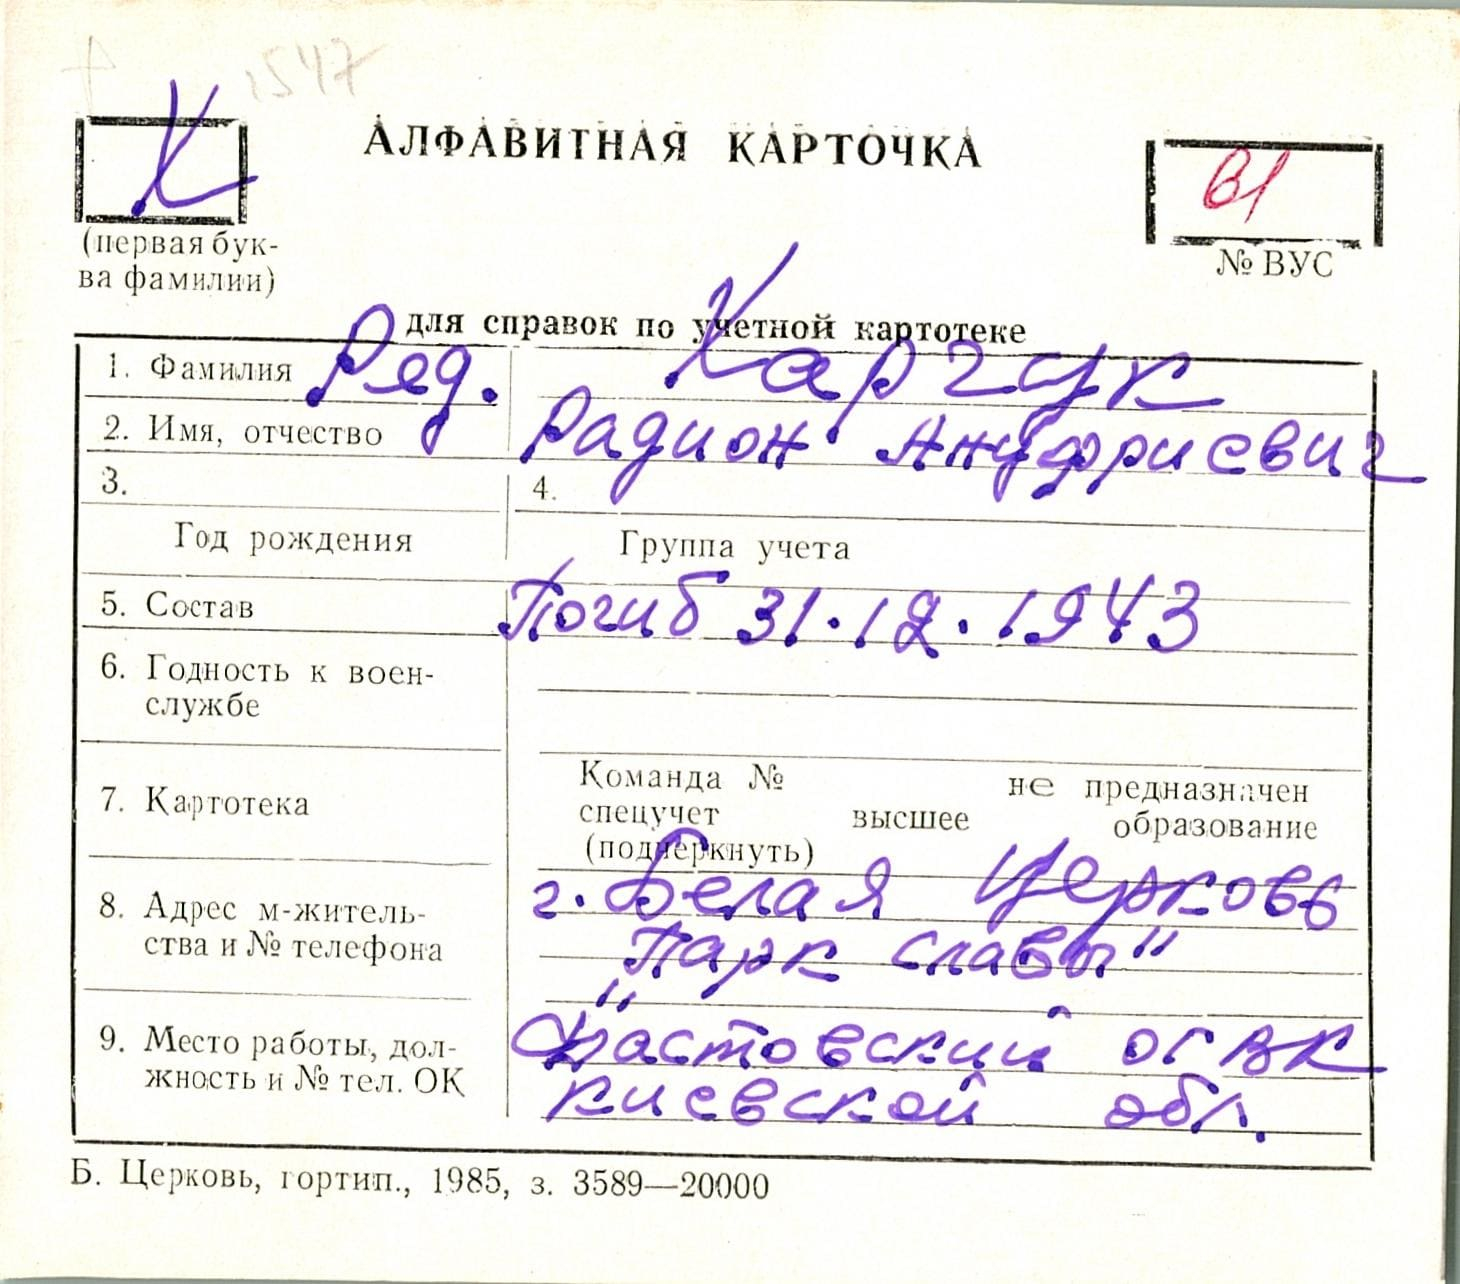 1547
К
АЛФАВИТНАЯ КАРТОЧКА
61
(первая бук-
ва фамилии)
№ ВУС
для справок по учетной картотеке
1. Фамилия Ряд. Карчук
2. Имя, отчество Радион Ануфриевич
3. 4.
Год рождения Группа учета
5. Состав Погиб 31.12.1943
6. Годность к воен-
службе
Команда № не предназначен
7. Картотека спецучет высшее образование
(подчеркнуть)
8. Адрес м-житель- г. Белая Церковь
ства и № телефона „Парк славы"
9. Место работы, дол- Фастовский ОГВК
жность и № тел. ОК Киевской обл.
Б. Церковь, гортип., 1985, з. 3589—20000